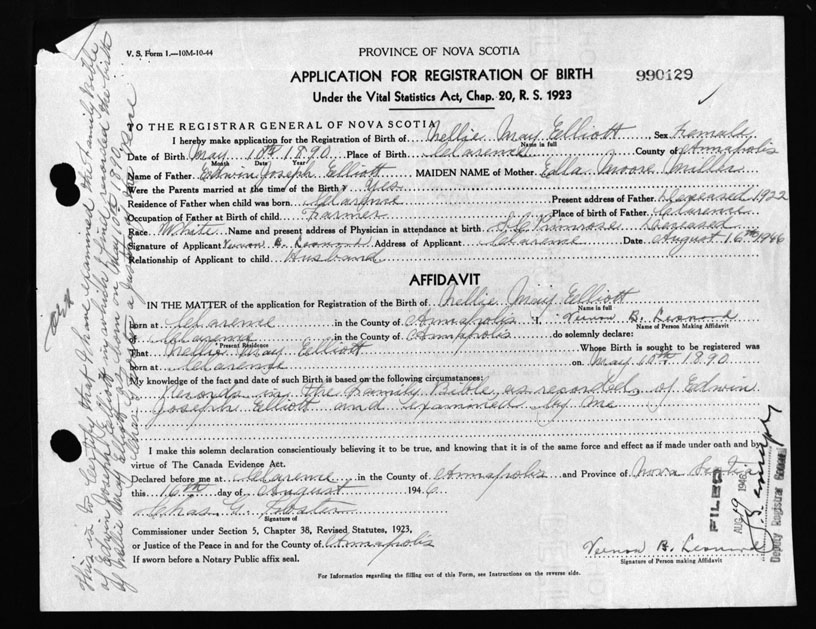 V. S. Form 1.—10M-10-44
PROVINCE OF NOVA SCOTIA
APPLICATION FOR REGISTRATION OF BIRTH
990129
Under the Vital Statistics Act, Chap. 20, R. S. 1923
TO THE REGISTRAR GENERAL OF NOVA SCOTIA
I hereby make application for the Registration of Birth of Nellie May Elliott, Sex Female
Name in full
Date of Birth May 10th 1890 Place of Birth Clarence County of Annapolis
Month Date Year
Name of Father Edwin Joseph Elliott MAIDEN NAME of Mother Ella Moore Miller
Were the Parents married at the time of the Birth? Yes
Residence of Father when child was born Clarence Present address of Father Deceased 1922
Occupation of Father at Birth of child Farmer Place of birth of Father Clarence
Race White Name and present address of Physician in attendance at birth Primrose Deceased
Signature of Applicant Vernon B. Leonard Address of Applicant Clarence Date August 16th 1946
Relationship of Applicant to child Husband
AFFIDAVIT
IN THE MATTER of the application for Registration of the Birth of Nellie May Elliott
Name in full
born at Clarence in the County of Annapolis I, Vernon B. Leonard
Name of Person Making Affidavit
of Clarence in the County of Annapolis do solemnly declare:
Present Residence
That Nellie May Elliott Whose Birth is sought to be registered was
born at Clarence on May 10th 1890
My knowledge of the fact and date of such Birth is based on the following circumstances:
Records in the Family Bible as recorded of Edwin
Joseph Elliott and examined by me
I make this solemn declaration conscientiously believing it to be true, and knowing that it is of the same force and effect as if made under oath and by
virtue of The Canada Evidence Act.
Declared before me at Clarence in the County of Annapolis and Province of Nova Scotia
this 16th day of August 1946
Chas G. Foster
Signature of
Commissioner under Section 5, Chapter 38, Revised Statutes, 1923,
or Justice of the Peace in and for the County of Annapolis
If sworn before a Notary Public affix seal.
Vernon B. Leonard
Signature of Person making Affidavit
For Information regarding the filling out of this Form, see Instructions on the reverse side.
FILED
AUG 19 1946
Deputy Registrar General
This is to Certify that I have examined the Family Bible
of Edwin Joseph Elliott in which I find recorded the birth
of Nellie May Elliott as born on May 10th 1890
a Justice of the Peace